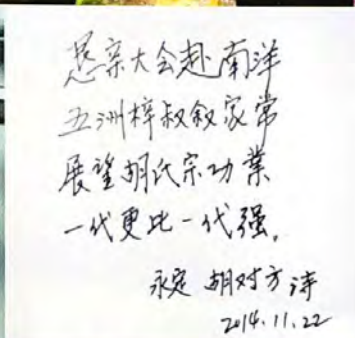 恳亲大会赴南洋
五洲梓叔叙家常
展望胡氏宗功業
一代更比一代强.
永定 胡对方诗
2014.11.22